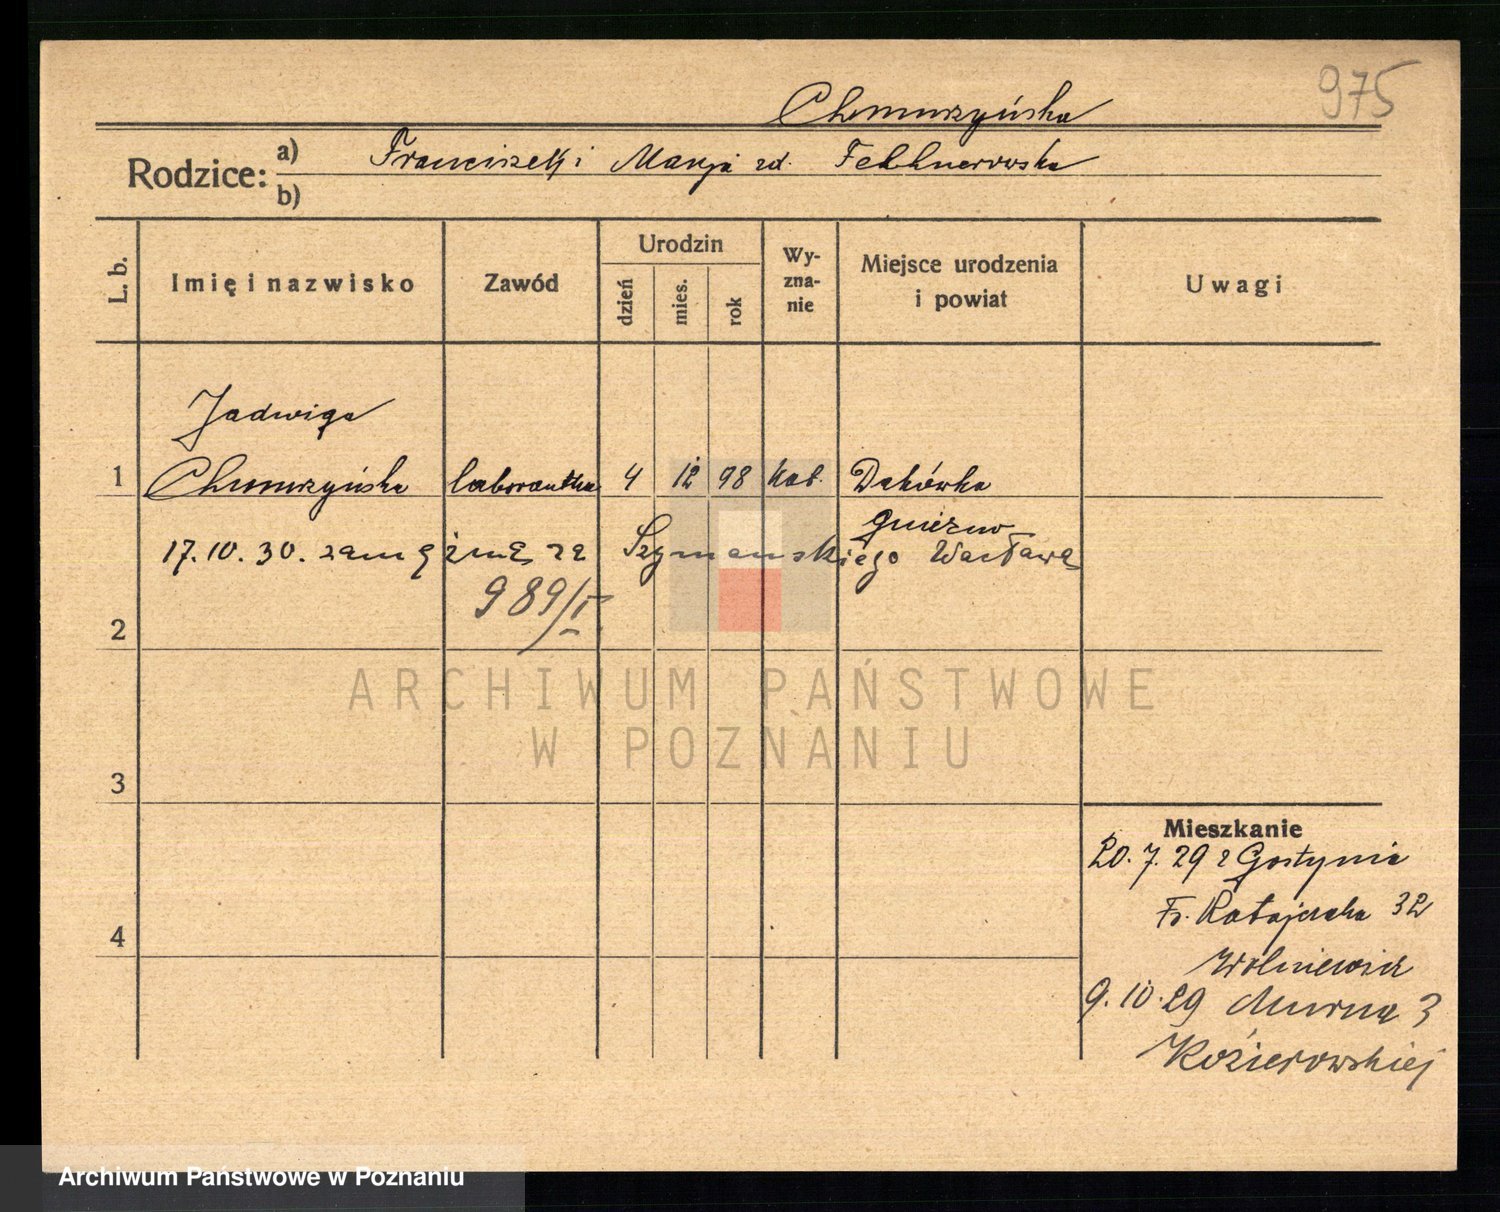 975
Chmurzyńska
Rodzice: a) Franciszek i Marja zd.
b)
L. b. Imię i nazwisko Zawód Urodzin dzień mies. rok Wyznanie Miejsce urodzenia i powiat Uwagi
Jadwiga
1 Chmurzyńska laborantka 4 12 98 kat. Dakówka
Gniezno
17.10.30. zamężna za Szymańskiego Wacława
989/I
2
ARCHIWUM PAŃSTWOWE
W POZNANIU
3
Mieszkanie
20.7.29 z Gostynia
4 Fr. Ratajczaka 32
Wolniewicz
9.10.29 Murna 3
Kozierowskiej
Archiwum Państwowe w Poznaniu